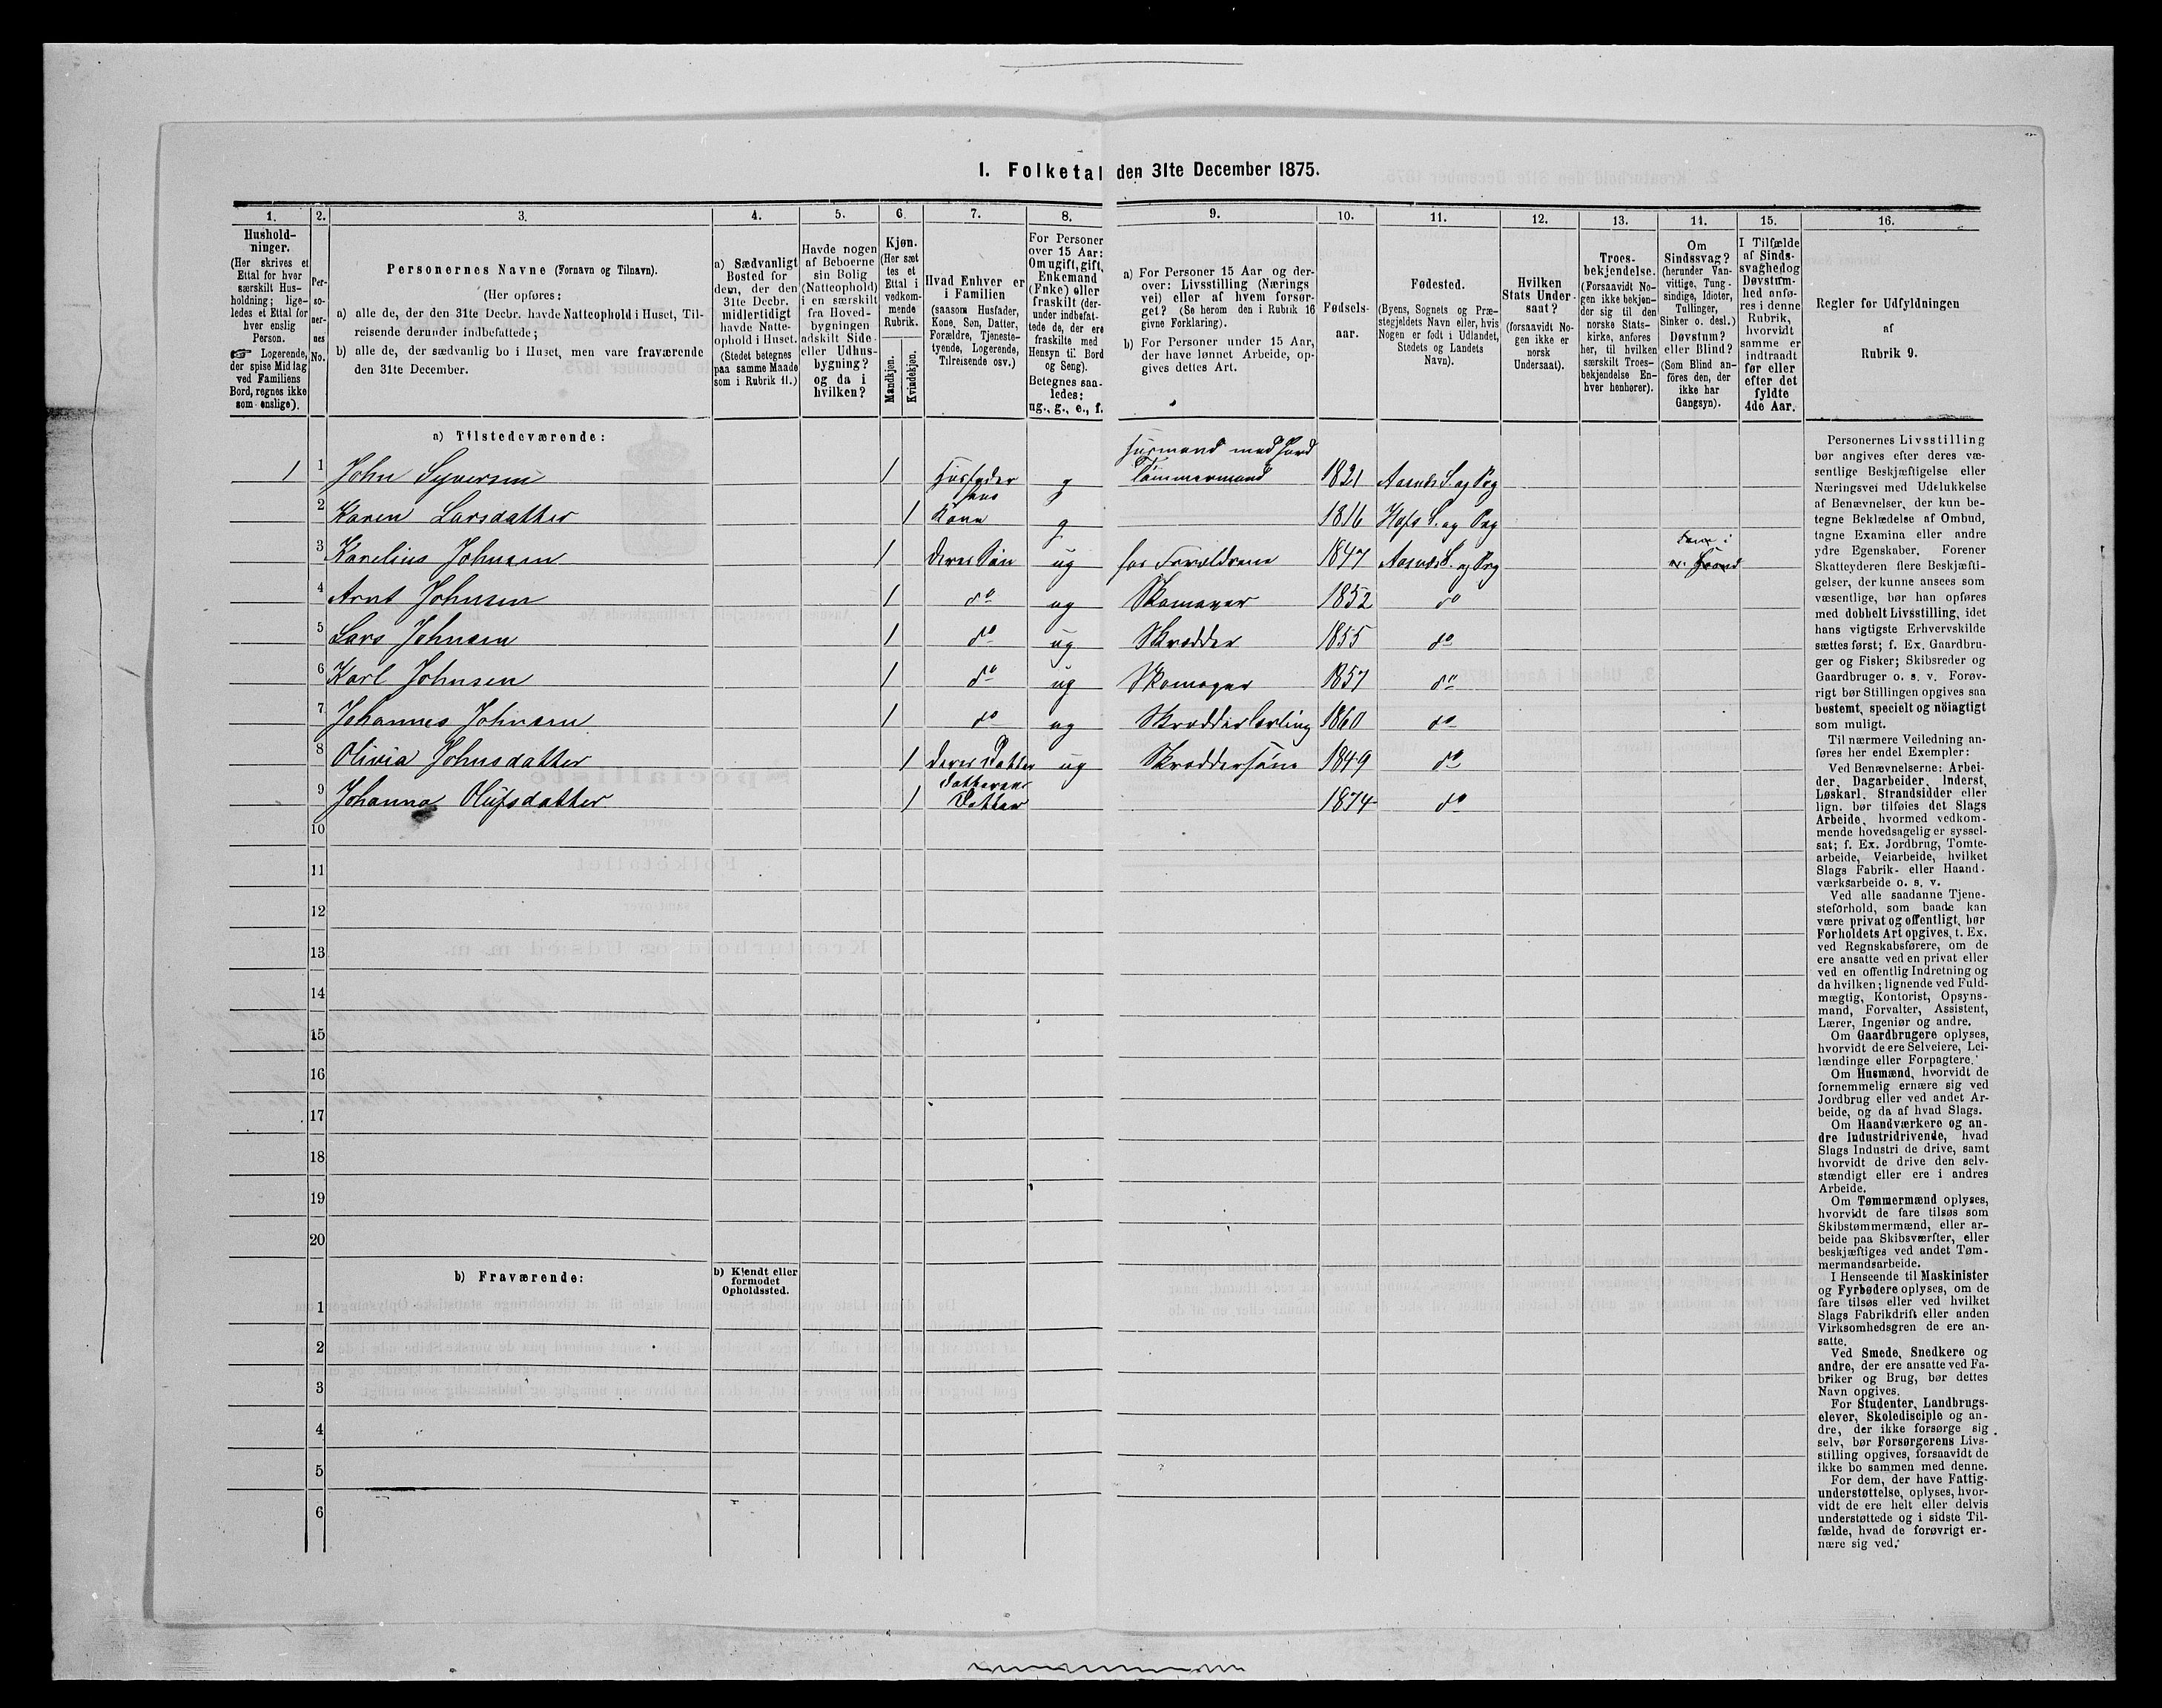 1. Folketal den 31te December 1875.
1.
Hushold-
ninger.
(Her skrives et
Ettal for hver
særskilt Hus-
holdning; lige-
ledes et Ettal for
hver enslig
Person.
☞ Logerende,
der spise Middag
ved Familiens
Bord, regnes ikke
som enslige).
2.
Per-
so-
ner-
nes
No.
3.
Personernes Navne (Fornavn og Tilnavn).
(Her opføres:
a) alle de, der den 31te Decbr. havde Natteophold i Huset, Til-
reisende derunder indbefattede;
b) alle de, der sædvanlig bo i Huset, men vare fraværende
den 31te December.
4.
a) Sædvanligt
Bosted for
dem, der den
31te Decbr.
midlertidigt
havde Natte-
ophold i Huset.
(Stedet betegnes
paa samme Maade
som i Rubrik 11.)
5.
Havde nogen
af Beboerne
sin Bolig
(Natteophold)
i en særskilt
fra Hoved-
bygningen
adskilt Side-
eller Udhus-
bygning?
og da i
hvilken?
6.
Kjøn.
(Her sæt
tes et
Ettal i
vedkom-
mende
Rubrik.
Mandkjøn.
Kvindekjøn.
7.
Hvad Enhver er
i Familien
(saasom Husfader,
Kone, Søn, Datter,
Forældre, Tjeneste-
tyende, Logerende,
Tilreisende osv.)
8.
For Personer
over 15 Aar:
Om ugift, gift,
Enkemand
(Enke) eller
fraskilt (der-
under indbefat-
tede de, der ere
fraskilte med
Hensyn til Bord
og Seng).
Betegnes saa-
ledes:
ug., g., e., f.
9.
a) For Personer 15 Aar og der-
over: Livsstilling (Nærings
vei) eller af hvem forsør-
get? (Se herom den i Rubrik 16
givne Forklaring).
b) For Personer under 15 Aar,
der have lønnet Arbeide, op-
gives dettes Art.
10.
Fødsels-
aar.
11.
Fødested.
(Byens, Sognets og Præ-
stegjeldets Navn eller, hvis
Nogen er født i Udlandet,
Stedets og Landets
Navn).
12.
Hvilken
Stats Under-
saat?
(forsaavidt No-
gen ikke er
norsk
Undersaat).
13.
Troes-
bekjendelse.
(Forsaavidt No-
gen ikke bekjen-
der sig til den
norske Stats-
kirke, anføres
her, til hvilken
særskilt Troes-
bekjendelse En-
hver henhører).
14.
Om
Sindssvag?
(herunder Van-
vittige, Tung-
sindige, Idioter,
Tullinger,
Sinker o. desl.)
Døvstum?
eller Blind?
(Som Blind an-
föres den, der
ikke har
Gangsyn).
15.
I Tilfælde
af Sinds-
svaghed og
Døvstum-
hed anfø-
res i denne
Rubrik,
hvorvidt
samme er
indtraadt
før eller
efter det
fyldte
4de Aar.
16.
Regler for Udfyldningen
af
Rubrik 9.
a) Tilstedeværende:
Husmand med Jord
1 1 John Syversen 1 Husfader g Tömmermand 1821 Aasnæs S. og Prg
hans
2 Karen Larsdatter 1 Kone g 1816 Hofs S. og Prg
3 Karelius Johnsen 1 deres Sön ug hos Forældrene 1847 Aasnæs S. og Prg
4 Arnt Johnsen 1 do ug Skomager 1852 do
5 Lars Johnsen 1 do ug Skrædder 1855 do
6 Karl Johnsen 1 do ug Skomager 1857 do
7 Johannes Johnsen 1 do ug Skrædderlærling 1860 do
8 Olivia Johnsdatter 1 deres Datter ug Skræddersöm 1849 do
Datterens
9 Johanna Olufsdatter 1 Datter 1874 do
10
11
12
13
14
15
16
17
18
19
20
b) Fraværende:
b) Kjendt eller
formodet
Opholdssted.
1
2
3
4
5
6
Personernes Livsstilling
bør angives efter deres væ-
sentlige Beskjæftigelse eller
Næringsvei med Udelukkelse
af Benævnelser, der kun be-
tegne Beklædelse af Ombud,
tagne Examina eller andre
ydre Egenskaber. Forener
Skatteyderen flere Beskjæfti-
gelser, der kunne ansees som
væsentlige, bør han opføres
med dobbelt Livsstilling, idet
hans vigtigste Erhvervskilde
sættes først; f. Ex. Gaardbru-
ger og Fisker; Skibsreder og
Gaardbruger o. s. v. Forøv-
rigt bør Stillingen opgives saa
bestemt, specielt og nöiagtigt
som muligt.
Til nærmere Veiledning an-
føres her endel Exempler:
Ved Benævnelserne: Arbei-
der, Dagarbeider, Inderst,
Løskarl, Strandsidder eller
lign. bør tilføies det Slags
Arbeide, hvormed vedkom-
mende hovedsagelig er syssel-
sat; f. Ex. Jordbrug, Tomte-
arbeide, Veiarbeide, hvilket
Slags Fabrik- eller Haand-
værksarbeide o. s. v.
Ved alle saadanne Tjene-
steforhold, som baade kan
være privat og offentligt, bør
Forholdets Art opgives, f. Ex.
ved Regnskabsførere, om de
ere ansatte ved en privat eller
ved en offentlig Indretning og
da hvilken; lignende ved Fuld-
mægtig, Kontorist, Opsyns-
mand, Forvalter, Assistent,
Lærer, Ingeniør og andre.
Om Gaardbrugere oplyses,
hvorvidt de ere Selveiere, Lei-
lændinge eller Forpagtere.
Om Husmænd, hvorvidt de
fornemmelig ernære sig ved
Jordbrug eller ved andet Ar-
beide, og da af hvad Slags.
Om Haandværkere og an-
dre Industridrivende, hvad
Slags Industri de drive, samt
hvorvidt de drive den selv-
stændigt eller ere i andres
Arbeide.
Om Tømmermænd oplyses,
hvorvidt de fare tilsøs som
Skibstømmermænd, eller ar-
beide paa Skibsværfter, eller
beskjæftiges ved andet Tøm-
mermandsarbeide.
I Henseende til Maskinister
og Fyrbødere oplyses, om de
fare tilsøs eller ved hvilket
Slags Fabrikdrift eller anden
Virksomhedsgren de ere an-
satte.
Ved Smede, Snedkere og
andre, der ere ansatte ved Fa-
briker og Brug, bør dettes
Navn opgives.
For Studenter, Landbrugs-
elever, Skoledisciple og an-
dre, der ikke forsørge sig
selv, bør Forsørgerens Livs-
stilling opgives, forsaavidt de
ikke bo sammen med denne.
For dem, der have Fattig-
understøttelse, oplyses, hvor-
vidt de ere helt eller delvis
understøttede og i sidste Til-
fælde, hvad de forøvrigt er-
nære sig ved.